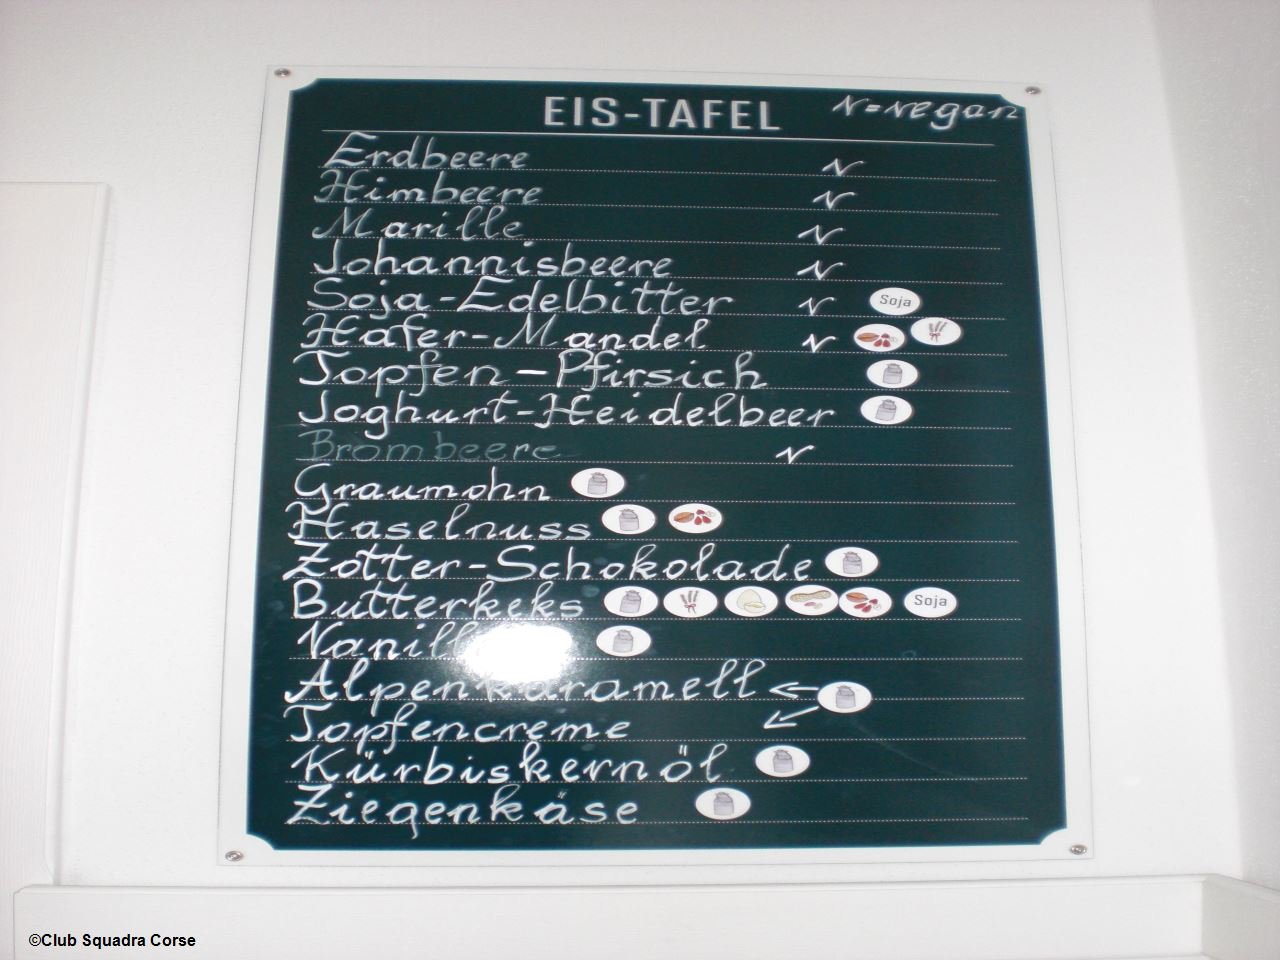 EIS-TAFEL V=vegan
Erdbeere V
Himbeere V
Marille V
Johannisbeere V
Soja-Edelbitter V Soja
Hafer-Mandel V
Topfen-Pfirsich
Joghurt-Heidelbeer
Brombeere V
Graumohn
Haselnuss
Zotter-Schokolade
Butterkeks Soja
Vanille
Alpenkaramell
Topfencreme
Kürbiskernöl
Ziegenkäse
©Club Squadra Corse